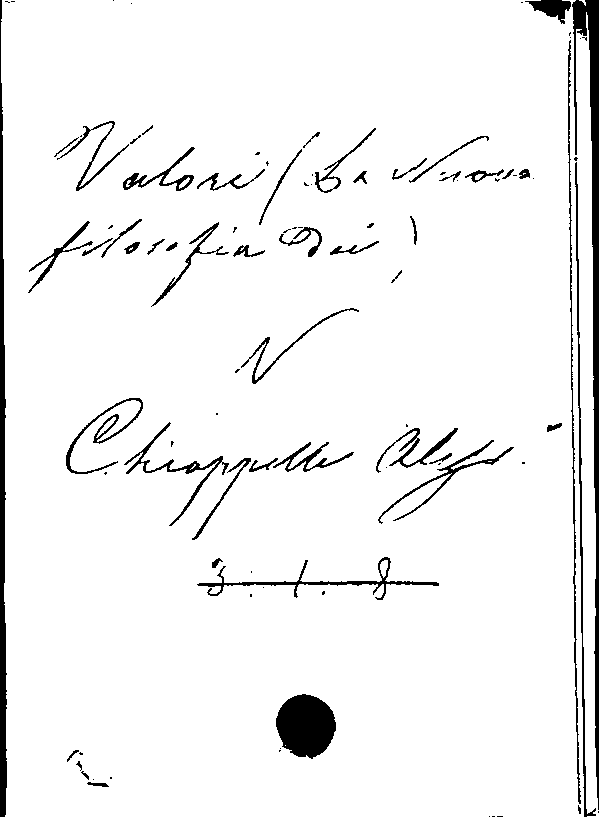 Valori (La Nuova
filosofia Dei)
V
Chiappelli Aless.
3. 1. 8